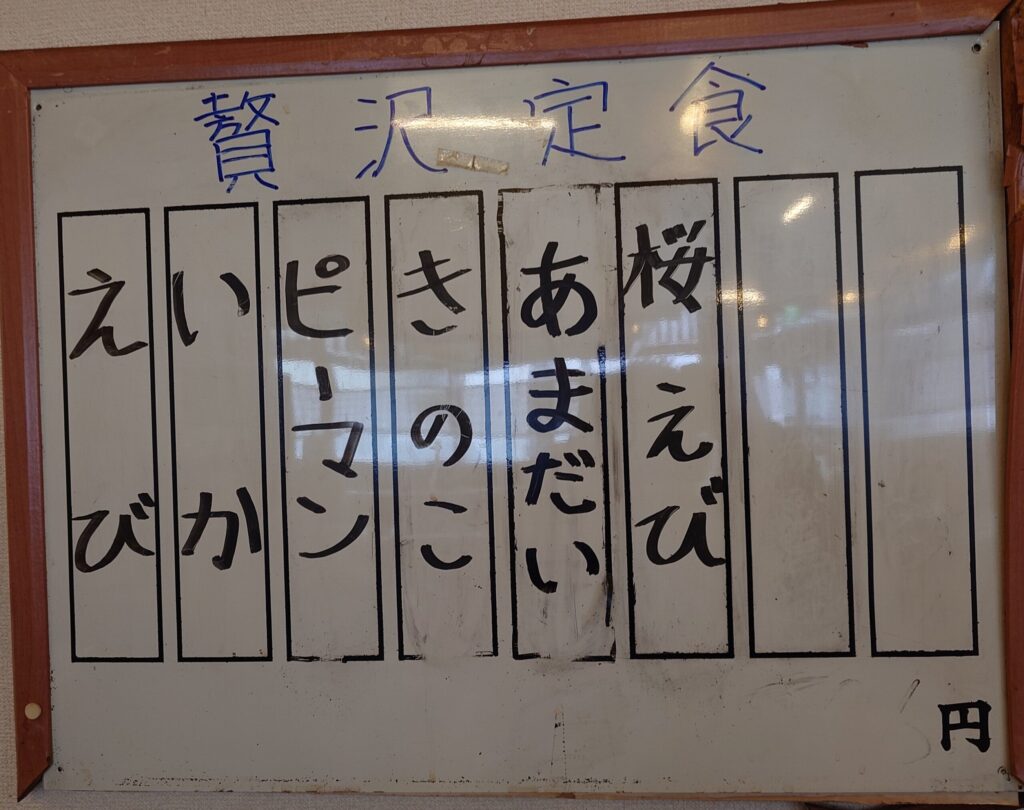 贅沢定食
桜えび
あまだい
きのこ
ピーマン
いか
えび
円